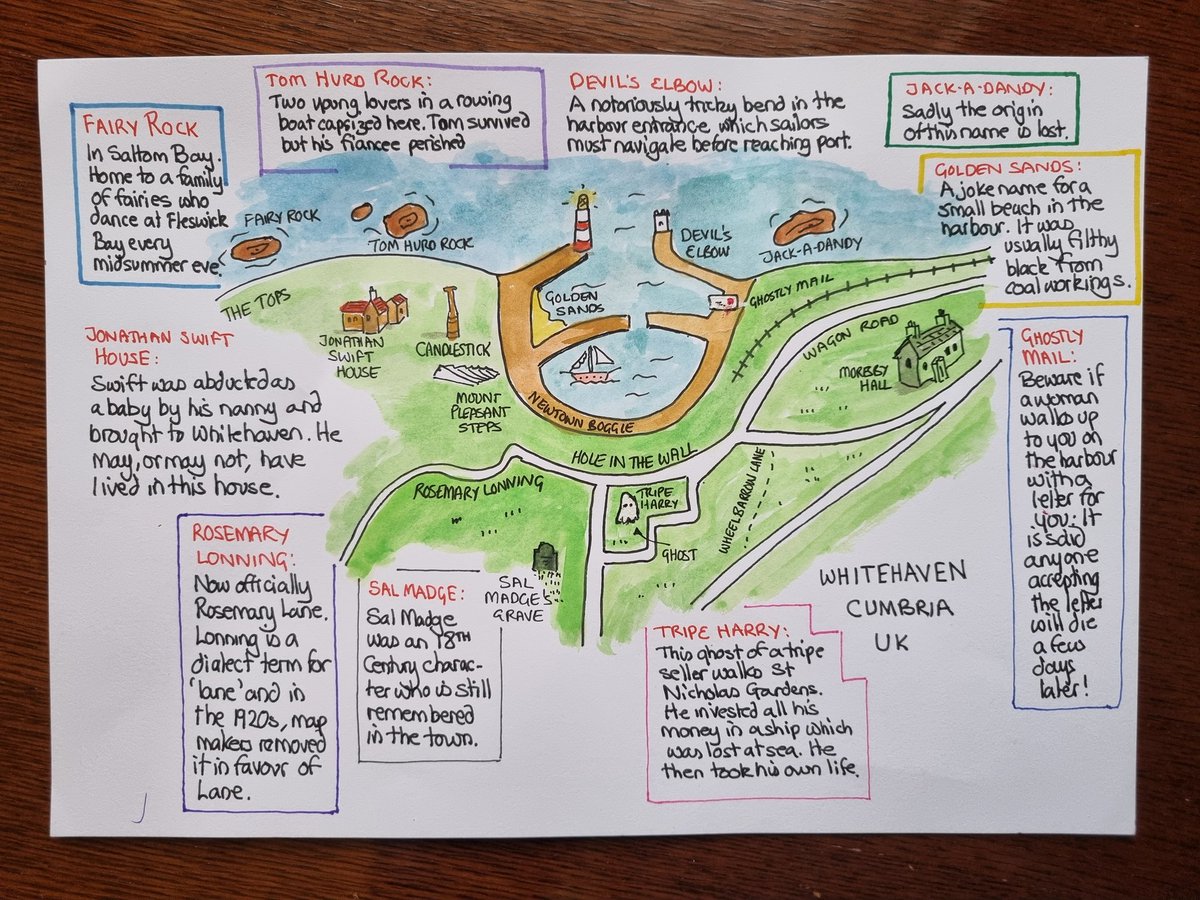 TOM HURD ROCK:
Two young lovers in a rowing
boat capsized here. Tom survived
but his fiancee perished
DEVIL'S ELBOW:
A notoriously tricky bend in the
harbour entrance which sailors
must navigate before reaching port.
JACK-A-DANDY:
Sadly the origin
of this name is lost.
FAIRY ROCK
In Saltom Bay.
Home to a family
of fairies who
dance at Fleswick
Bay every
midsummer eve.
GOLDEN SANDS:
A joke name for a
small beach in the
harbour. It was
usually filthy
black from
coal workings.
FAIRY ROCK
TOM HURD ROCK
DEVIL'S
ELBOW
JACK-A-DANDY
THE TOPS
GOLDEN
SANDS
GHOSTLY MAIL
JONATHAN
SWIFT
HOUSE
CANDLESTICK
WAGON ROAD
MORESBY
HALL
MOUNT
PLEASANT
STEPS
NEWTOWN BOGGLE
HOLE IN THE WALL
ROSEMARY LONNING
TRIPE
HARRY
GHOST
WHEELBARROW LANE
SAL
MADGE'S
GRAVE
WHITEHAVEN
CUMBRIA
UK
JONATHAN SWIFT
HOUSE:
Swift was abducted as
a baby by his nanny and
brought to Whitehaven. He
may, or may not, have
lived in this house.
GHOSTLY
MAIL:
Beware if
a woman
walks up
to you on
the harbour
with a
letter for
you. It
is said
anyone
accepting
the letter
will die
a few
days
later!
ROSEMARY
LONNING:
Now officially
Rosemary Lane.
Lonning is a
dialect term for
'lane' and in
the 1920s, map
makers removed
it in favour of
Lane.
SAL MADGE:
Sal Madge
was an 18TH
Century charac-
ter who is still
remembered
in the town.
TRIPE HARRY:
This ghost of a tripe
seller walks St
Nicholas Gardens.
He invested all his
money in a ship which
was lost at sea. He
then took his own life.